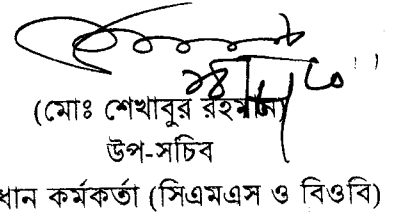 (মোঃ শেখাবুর রহমান)
উপ-সচিব
ধান কর্মকর্তা (সিএমএস ও বিওবি)